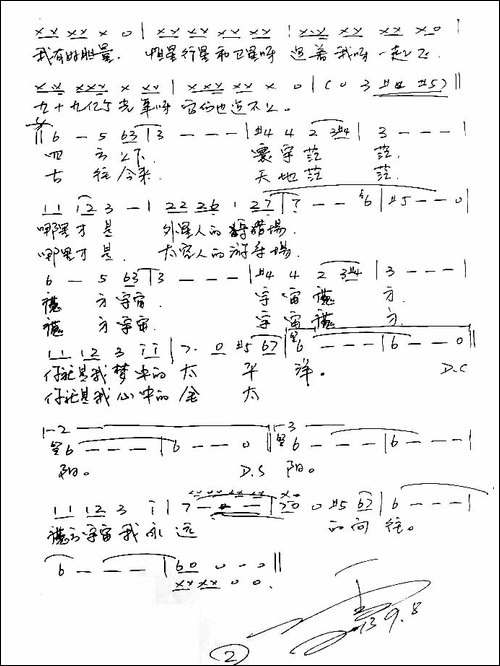 x x x x x 0 | x x x x x x x x | x x x x x x x 0 |
我有好胆量. 恒星行星和卫星呀 追着我呀一起飞
x x x x x x x x | x x x x x x 0 | ( 0 3 #4 #5 ) ||
九十九亿5光年呀 它们也追不上。
|| 6 - 5 63 | 3 - - - | #4 4 2 3#4 | 3 - - - |
四方上下 寰宇茫茫.
古往今来 天地茫茫.
11 12 3 - | 22 26 1 27 | 7 - - #6 | #5 - - 0 |
哪里才是 外星人的狩猎场.
哪里才是. 太空人的游乐场.
6 - 5 63 | 3 - - - | #4 4 2 3#4 | 3 - - - |
魔方宇宙 宇宙魔方.
魔方宇宙 宇宙魔方.
11 12 3 i i | 7. 0 #5 67 | 6 - - - | 6 - - 0 ||
你就是我梦中的太平洋。 D.C
你就是我心中的金太
1-2 3
6 - - - | 6 - - 0 || 6 - - - | 6 - - - |
阳。 D.S 阳。
11 12 3 i | 7 - - - | 70 0 #5 67 | 6 - - - |
魔方宇宙我永远 的向往。
6 - - - | 60 0 0 0 ||
xx xx 0 0
13 9.8
2